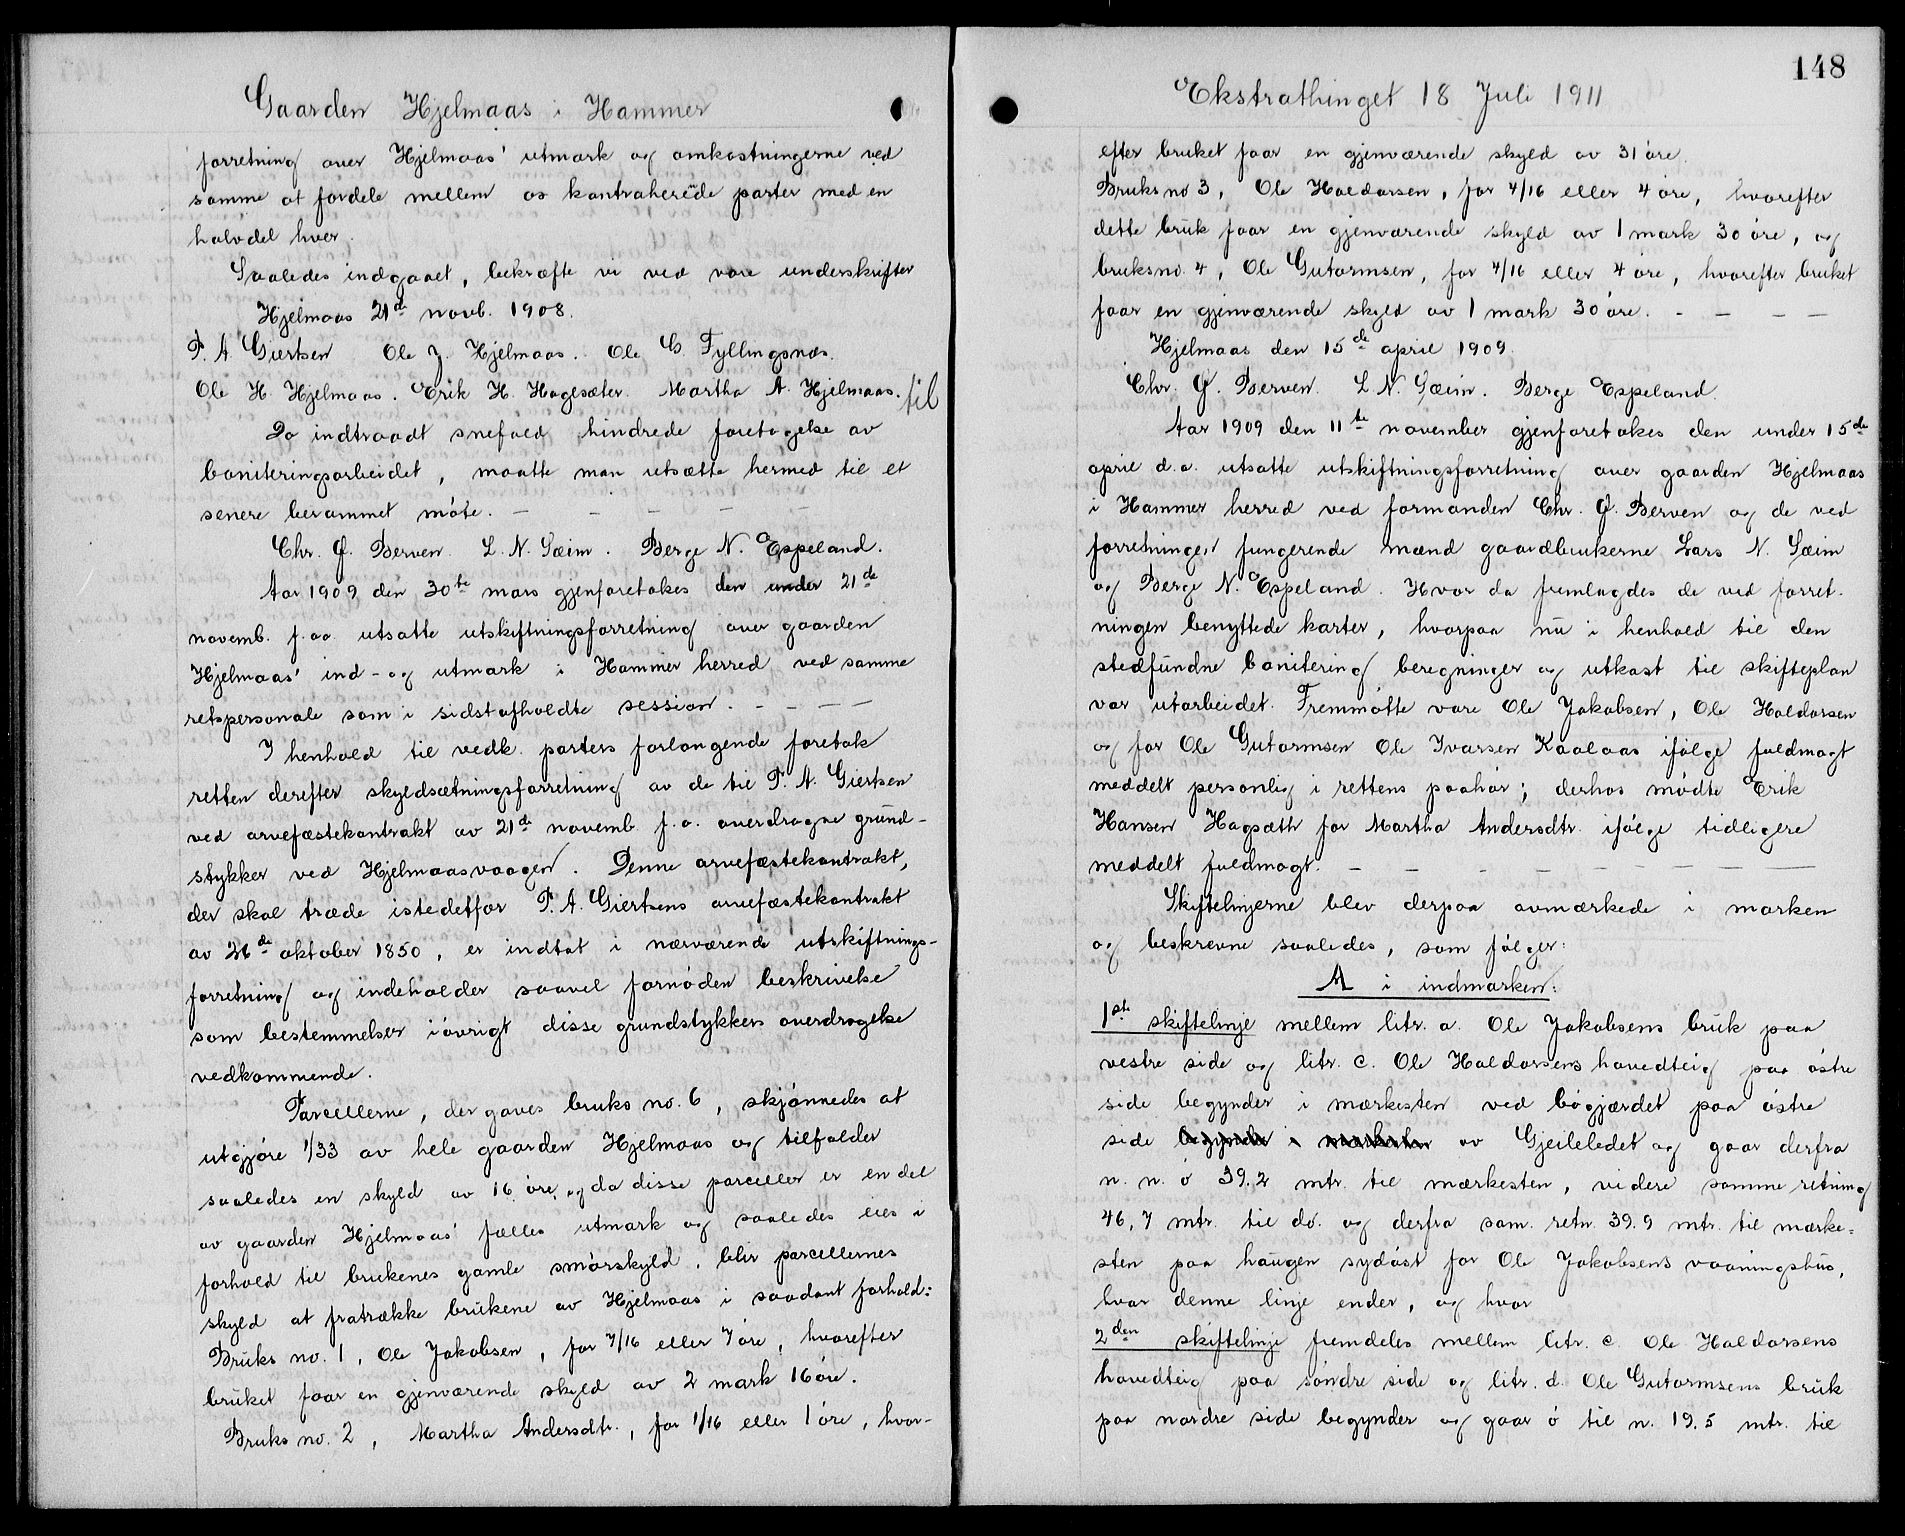 Gaarden Hjelmaas i Hammer
forretning over Hjelmaas' utmark og omkostningerne ved
samme at fordele mellem os kontraherede parter med en
halvdel hver.
Saaledes indgaaet, bekræfte vi ved vore underskrifter
Hjelmaas 21de novb. 1908.
P. A. Giertsen Ole J. Hjelmaas. Ole G. Fyllingsnæs.
Ole H. Hjelmaas. Erik H. Hagesæter. Martha A. Hjelmaas.
Da indtraadt snefald hindrede foretagelse av
boniteringsarbeidet, maatte man utsætte hermed til et
senere berammet møte. — — — — —
Chr. J. Berven. L. N. Sæim. Berge N. Espeland.
Aar 1909 den 30te mars gjenforetakes den under 21de
novemb. f. aa. utsatte utskiftningsforretning over gaarden
Hjelmaas' ind- og utmark i Hammer herred ved samme
retspersonale som i sidst afholdte session. — — — —
I henhold til vedk. parters forlangende foretok
retten derefter skyldsætningsforretning av de til P. A. Giertsen
ved arvefæstekontrakt av 21de novemb. f. a. overdragne grund-
stykker ved Hjelmaasvaagen. Denne arvefæstekontrakt,
der skal træde istedetfor P. A. Giertsens arvefæstekontrakt
av 26de oktober 1850, er indtat i nærværende utskiftnings-
forretning og indeholder saavel fornøden beskrivelse
som bestemmelser iøvrigt disse grundstykkers overdragelse
vedkommende.
Parcellerne, der gaves bruks no. 6, skjønnedes at
utgjøre 1/33 av hele gaarden Hjelmaas og tilfalder
saaledes en skyld av 16 øre, og da disse parceller er en del
av gaarden Hjelmaas' fælles utmark og saaledes eies i
forhold til brukenes gamle smørskyld, blir parcellernes
skyld at fratrække brukene av Hjelmaas i saadant forhold:
Bruks no. 1, Ole Jakobsen, for 7/16 eller 7 øre, hvorefter
bruket faar en gjenværende skyld av 2 mark 16 øre.
Bruks no. 2, Martha Andersdtr., for 1/16 eller 1 øre, hvor-
148
Ekstrathinget 18 Juli 1911
efter bruket faar en gjenværende skyld av 31 øre.
Bruks no 3, Ole Haldorsen, for 4/16 eller 4 øre, hvorefter
dette bruk faar en gjenværende skyld av 1 mark 30 øre, og
bruksno. 4, Ole Gutormsen, for 4/16 eller 4 øre, hvorefter bruket
faar en gjenværende skyld av 1 mark 30 øre. — — — —
Hjelmaas den 15de april 1909.
Chr. J. Berven. L. N. Sæim. Berge Espeland.
Aar 1909 den 11te november gjenforetakes den under 15de
april d. a. utsatte utskiftningsforretning over gaarden Hjelmaas
i Hammer herred ved formanden Chr. J. Berven og de ved
forretningen fungerende mænd gaardbrukerne Lars N. Sæim
og Berge N. Espeland. Hvor da fremlagdes de ved forret-
ningen benyttede karter, hvorpaa nu i henhold til den
stedfundne bonitering beregninger og utkast til skifteplan
var utarbeidet. Fremmøtte vare Ole Jakobsen, Ole Haldorsen
og for Ole Gutormsen Ole Ivarsen Kaalaas ifølge fuldmagt
meddelt personlig i rettens paahør; derhos mødte Erik
Hansen Hagsæth for Martha Andersdtr. ifølge tidligere
meddelt fuldmagt. — — — — — — —
Skiftelinjerne blev derpaa avmærkede i marken
og beskrevne saaledes, som følger:
A i indmarken:
1ste skiftelinje mellem litr. a. Ole Jakobsens bruk paa
vestre side og litr. c. Ole Haldorsens hovedteig paa østre
side begynder i mærkesten ved bøgjærdet paa østre
side av Gjeileledet og gaar derfra
n. n. ø 39.2 mtr. til mærkesten, videre samme retning
46,7 mtr. til do. og derfra sam. retn. 39.9 mtr. til mærke-
sten paa haugen sydøst for Ole Jakobsens vaaningshus,
hvor denne linje ender, og hvor
2den skiftelinje fremdeles mellem litr. c. Ole Haldorsens
hovedteig paa søndre side og litr. d. Ole Gutormsens bruk
paa nordre side begynder og gaar ø til n. 19.5 mtr. til